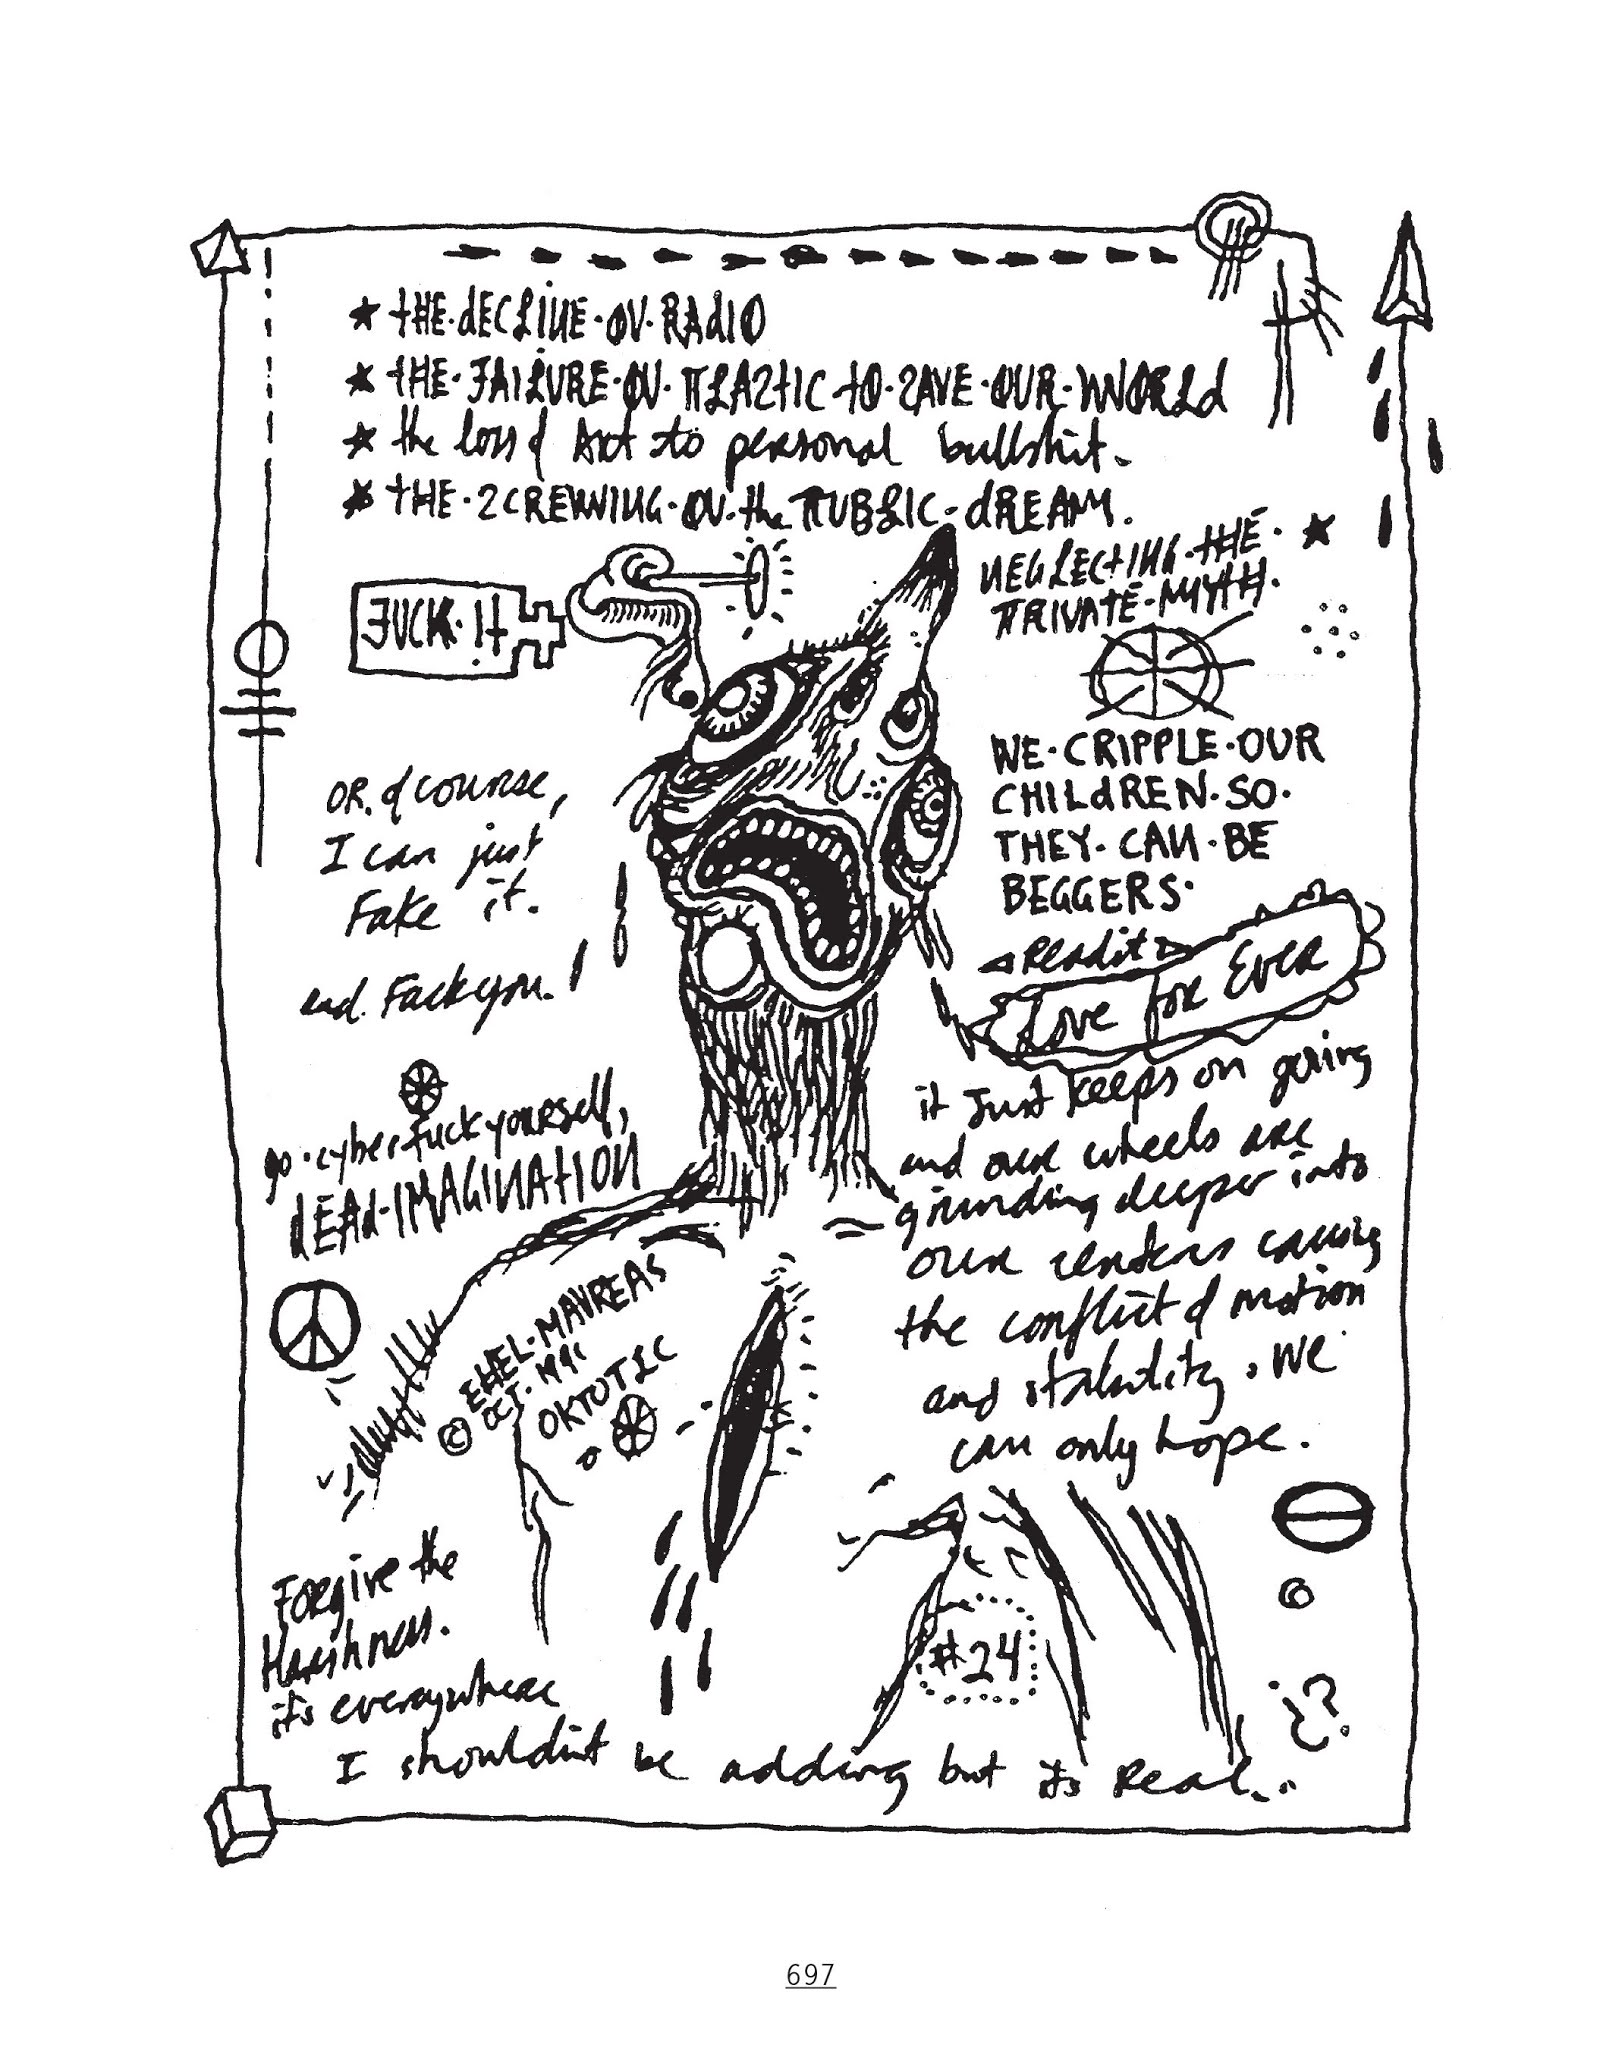 ★ tHE·dECLiNE·OV·RAdIO
★ tHE·FAiLURE·OV·PLAStIC·tO·SAVE·OUR·WORLd
★ the loss of Art to personal bullshit.
★ tHE·SCREWiNG·OV·the PUBLiC·dREAM.
NEGLECtiNG·tHE· ★
PRIVAtE·MYtH.
FUCK·It
WE·CRIPPLE·OUR
CHILdREN·SO·
THEY·CAN·BE
BEGGERS·
Readit
Love for Ever
OR, of course,
I can just
Fake it.
and. Fuck you.
go·cyberfuck yourself,
dEAd·IMAGINATION
it Just keeps on going
and our wheels are
grinding deeper into
our centers causing
the conflict of motion
and stability. We
can only hope.
© EHEL·MAVREAS
OCT.
OKTOTIC
Forgive the
Harshness.
its everywhere
#24
©
¿?
I shouldint be adding but its Real...
697